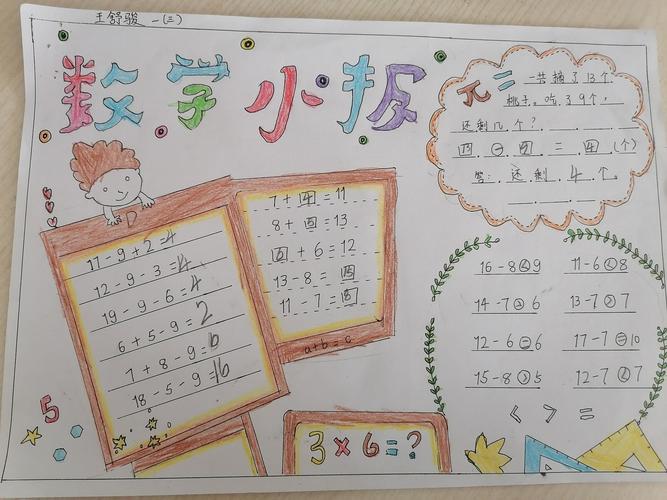 王舒骏 一(三)
数学小报
一共摘了13个
桃子。吃了9个,
还剩几个?
= (个)
答:还剩4个。
17-9+2=4
12-9-3=4
19-9-6=4
6+5-9=2
7+8-9=6
18-5-9=16
7+4=11
8+ =13
+6=12
13-8=
11-7=
a+b=c
16-8<9
11-6<8
14-7>6
13-7>7
12-6=6
17-7=10
15-8>5
12-7<7
< > =
5
3×6=?